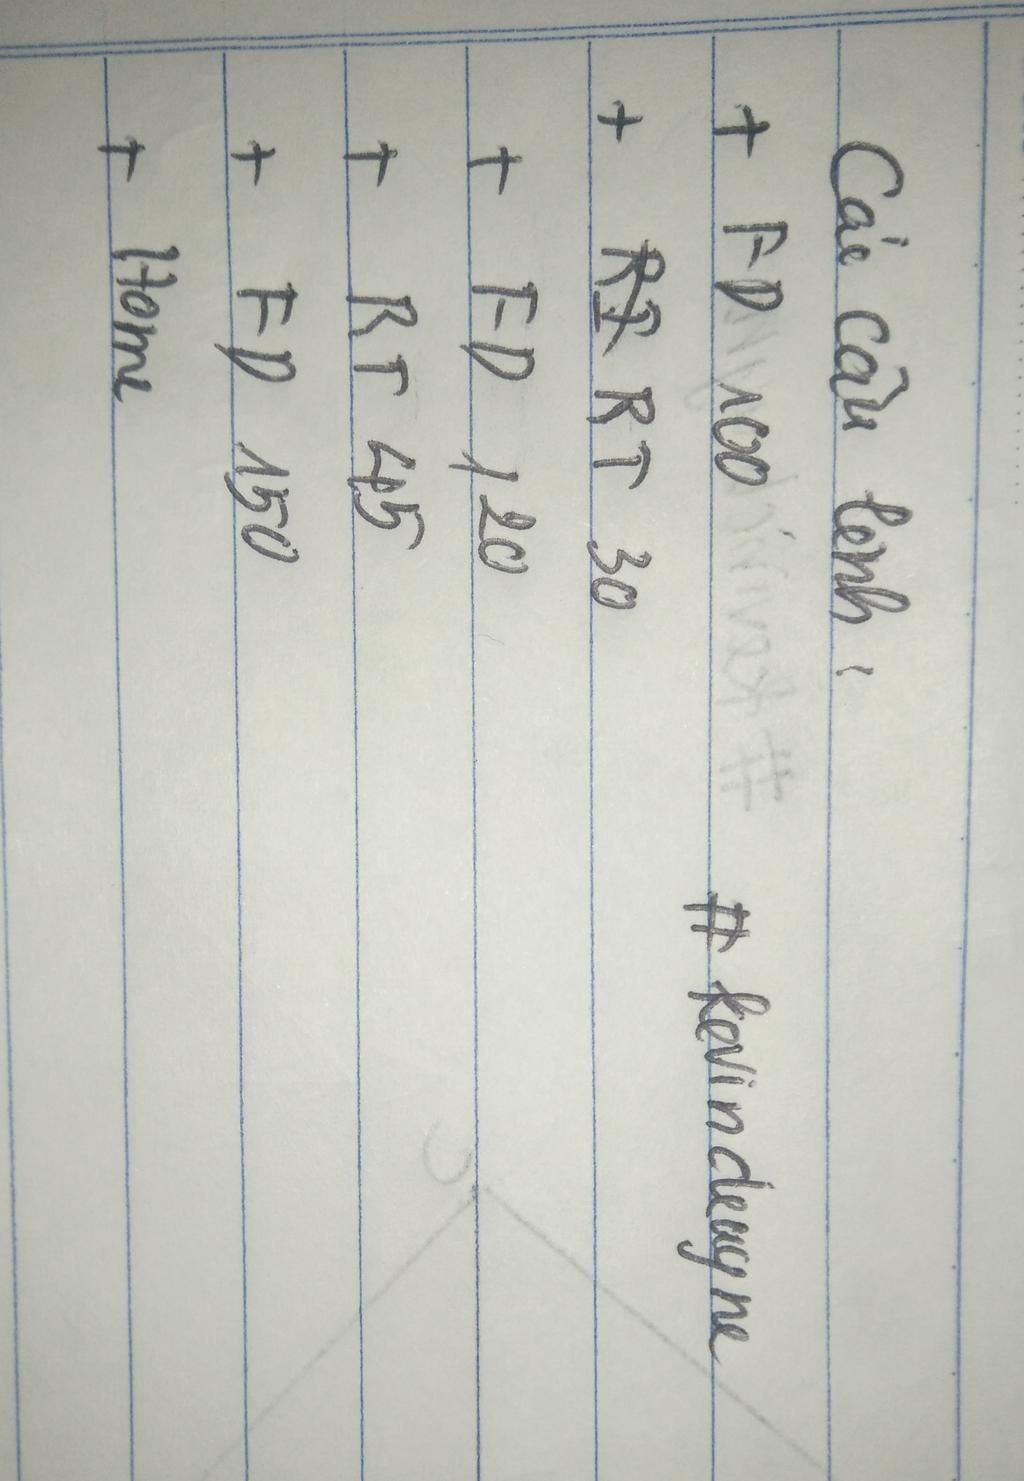 Các câu lệnh :
+ FD 100 # kevindeuyne
+ RT 30
+ FD 120
+ RT 45
+ FD 150
+ Home